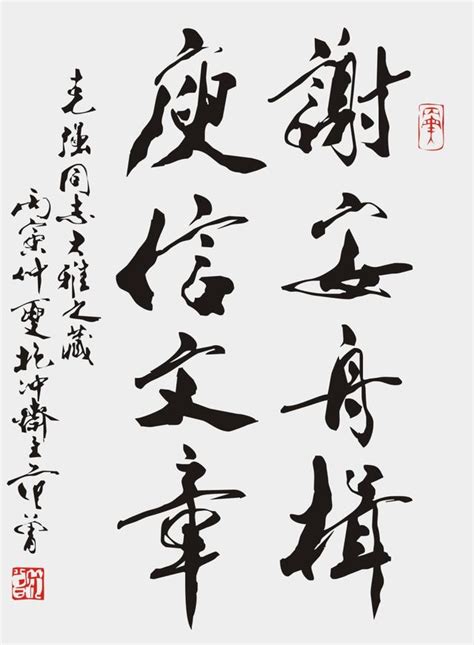 謝安舟楫
庾信文章
克强同志大雅之藏
丙寅仲夏抱冲齋主范曾